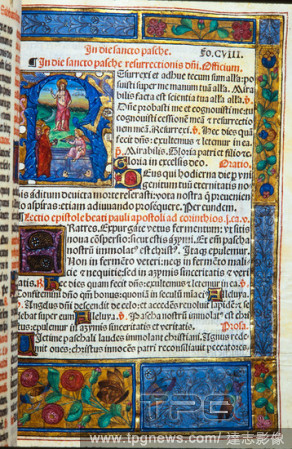 In die sancto pasche. fo.CVIII.
In die sancto pasche resurrectionis dñi. Officium.
Resurrexi et adhuc tecum sum alľa. po
suisti super me manum tuã alľa. Mira
bilis facta est scientia tua alľa alľa. ps.
Dñe probasti me et cognouisti me: tu
cognouisti sessionẽ meã ⁊ resurrectio
nem meã. Resurrexi. Hec dies quã
fecit dñs: exultemus ⁊ letemur in ea.
Mirabilis. Gloria patri ⁊ filio ⁊c.
Gloria in excelsis deo. Oratio.
Deus qui hodierna die p vni
genitum tuũ eternitatis no
bis aditum deuicta morte reserasti: vota nostra q̃ preuenien
do aspiras: etiam adiuuando prosequere. Per eundem.
Lectio epistole beati pauli apostoli ad corinthios. j. ca. v.
Fratres. Expurgate vetus fermentum: vt sitis
noua cõspersio: sicut estis azymi. Etem̃ pascha
nostrũ immolatꝰ est christꝰ. Itaq; epulemur.
Non in fermẽto veteri: neq; in fermẽto mali
cie ⁊ nequicie: sed in azymis sinceritatis ⁊ veri
tatis. Hec dies quam fecit dñs: exultemus ⁊ letemur in ea.
Confitemini dño qm̃ bonus: quoniã in seculũ mĩa eiꝰ Alleluya.
Angelus dñi descendit de celo: et accedens reuoluit lapidẽ ⁊ se
debat super eum Alleluya. Pascha nostrũ immolatus est chri
stus: epulemur in azymis sinceritatis et veritatis. Prosa.
Victime paschali laudes immolant christiani. Agnus rede
mit oues: christus innocens patri reconciliauit peccatores.
TPG
www.tpgnews.com/達志影像